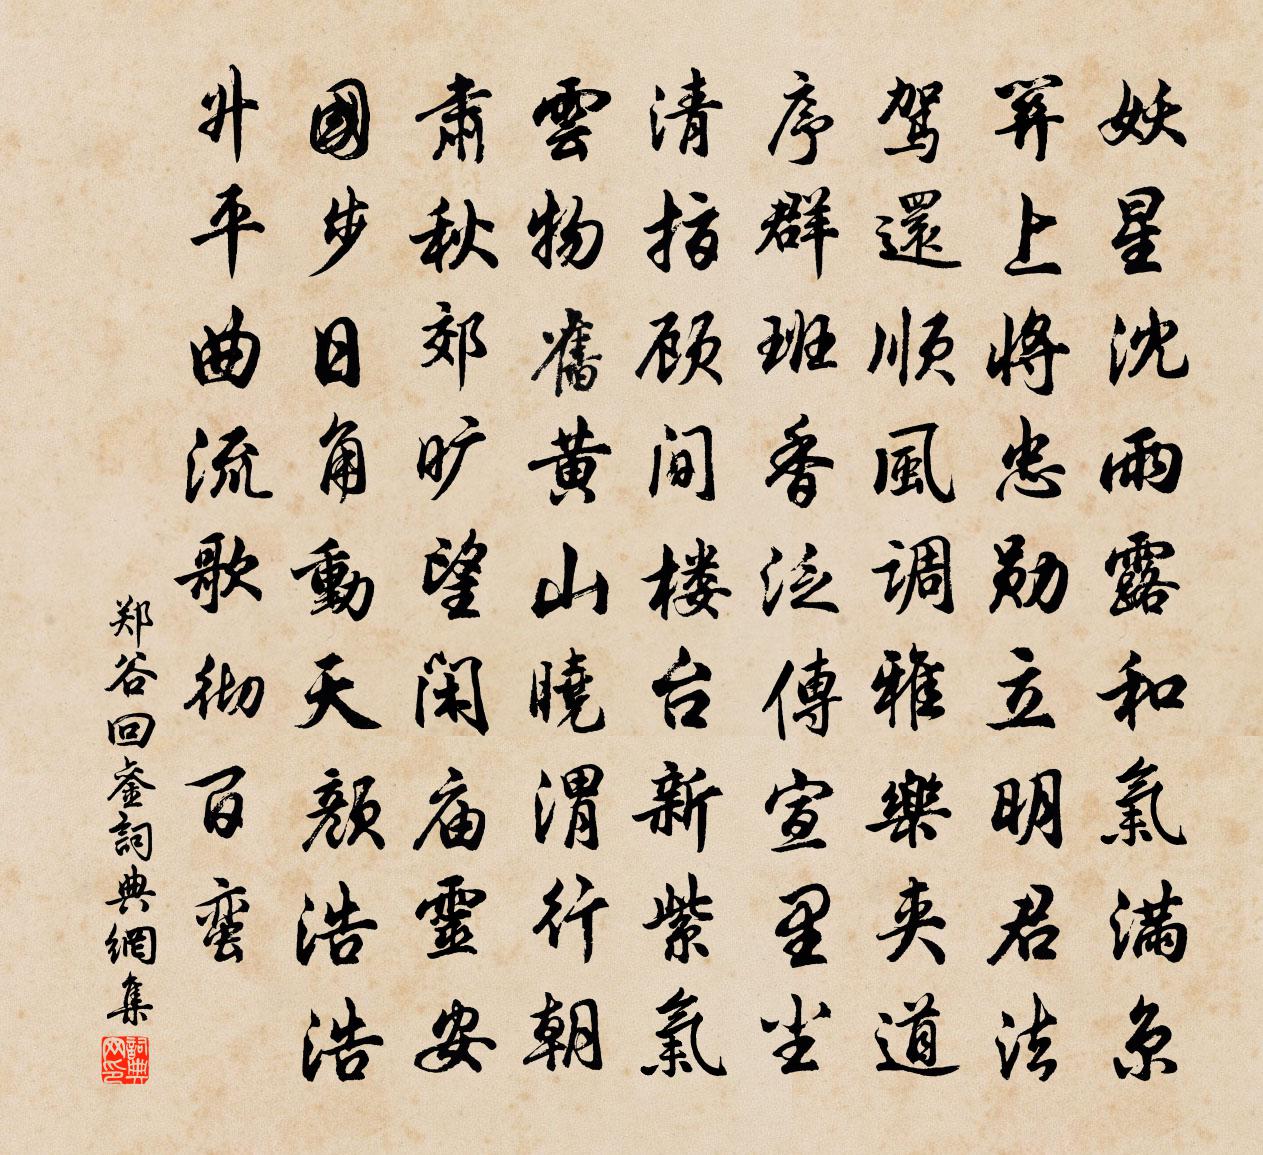 妖星沈雨露和氣滿京
關上將忠勋立明君法
駕還順風調雅樂夾道
序群班香泛傳宣里尘
清指顾间楼台新紫氣
雲物舊黄山曉渭行朝
肅秋郊旷望闲庙靈安
國步日角動天顏浩浩
升平曲流歌彻百蛮
郑谷回銮詞典網集
詞典网印